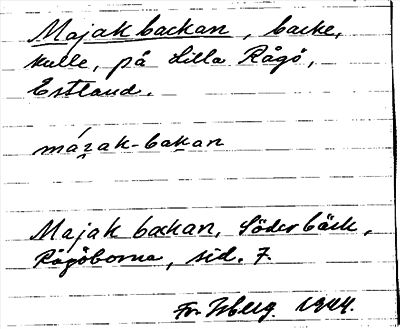 Majak backan, backe,
kulle, på Lilla Rågö,
Estland.
mái̯ak-bakan
Majak backan, Söderbäck,
Rågöborna, sid. 7.
Fr. Isberg 1944.